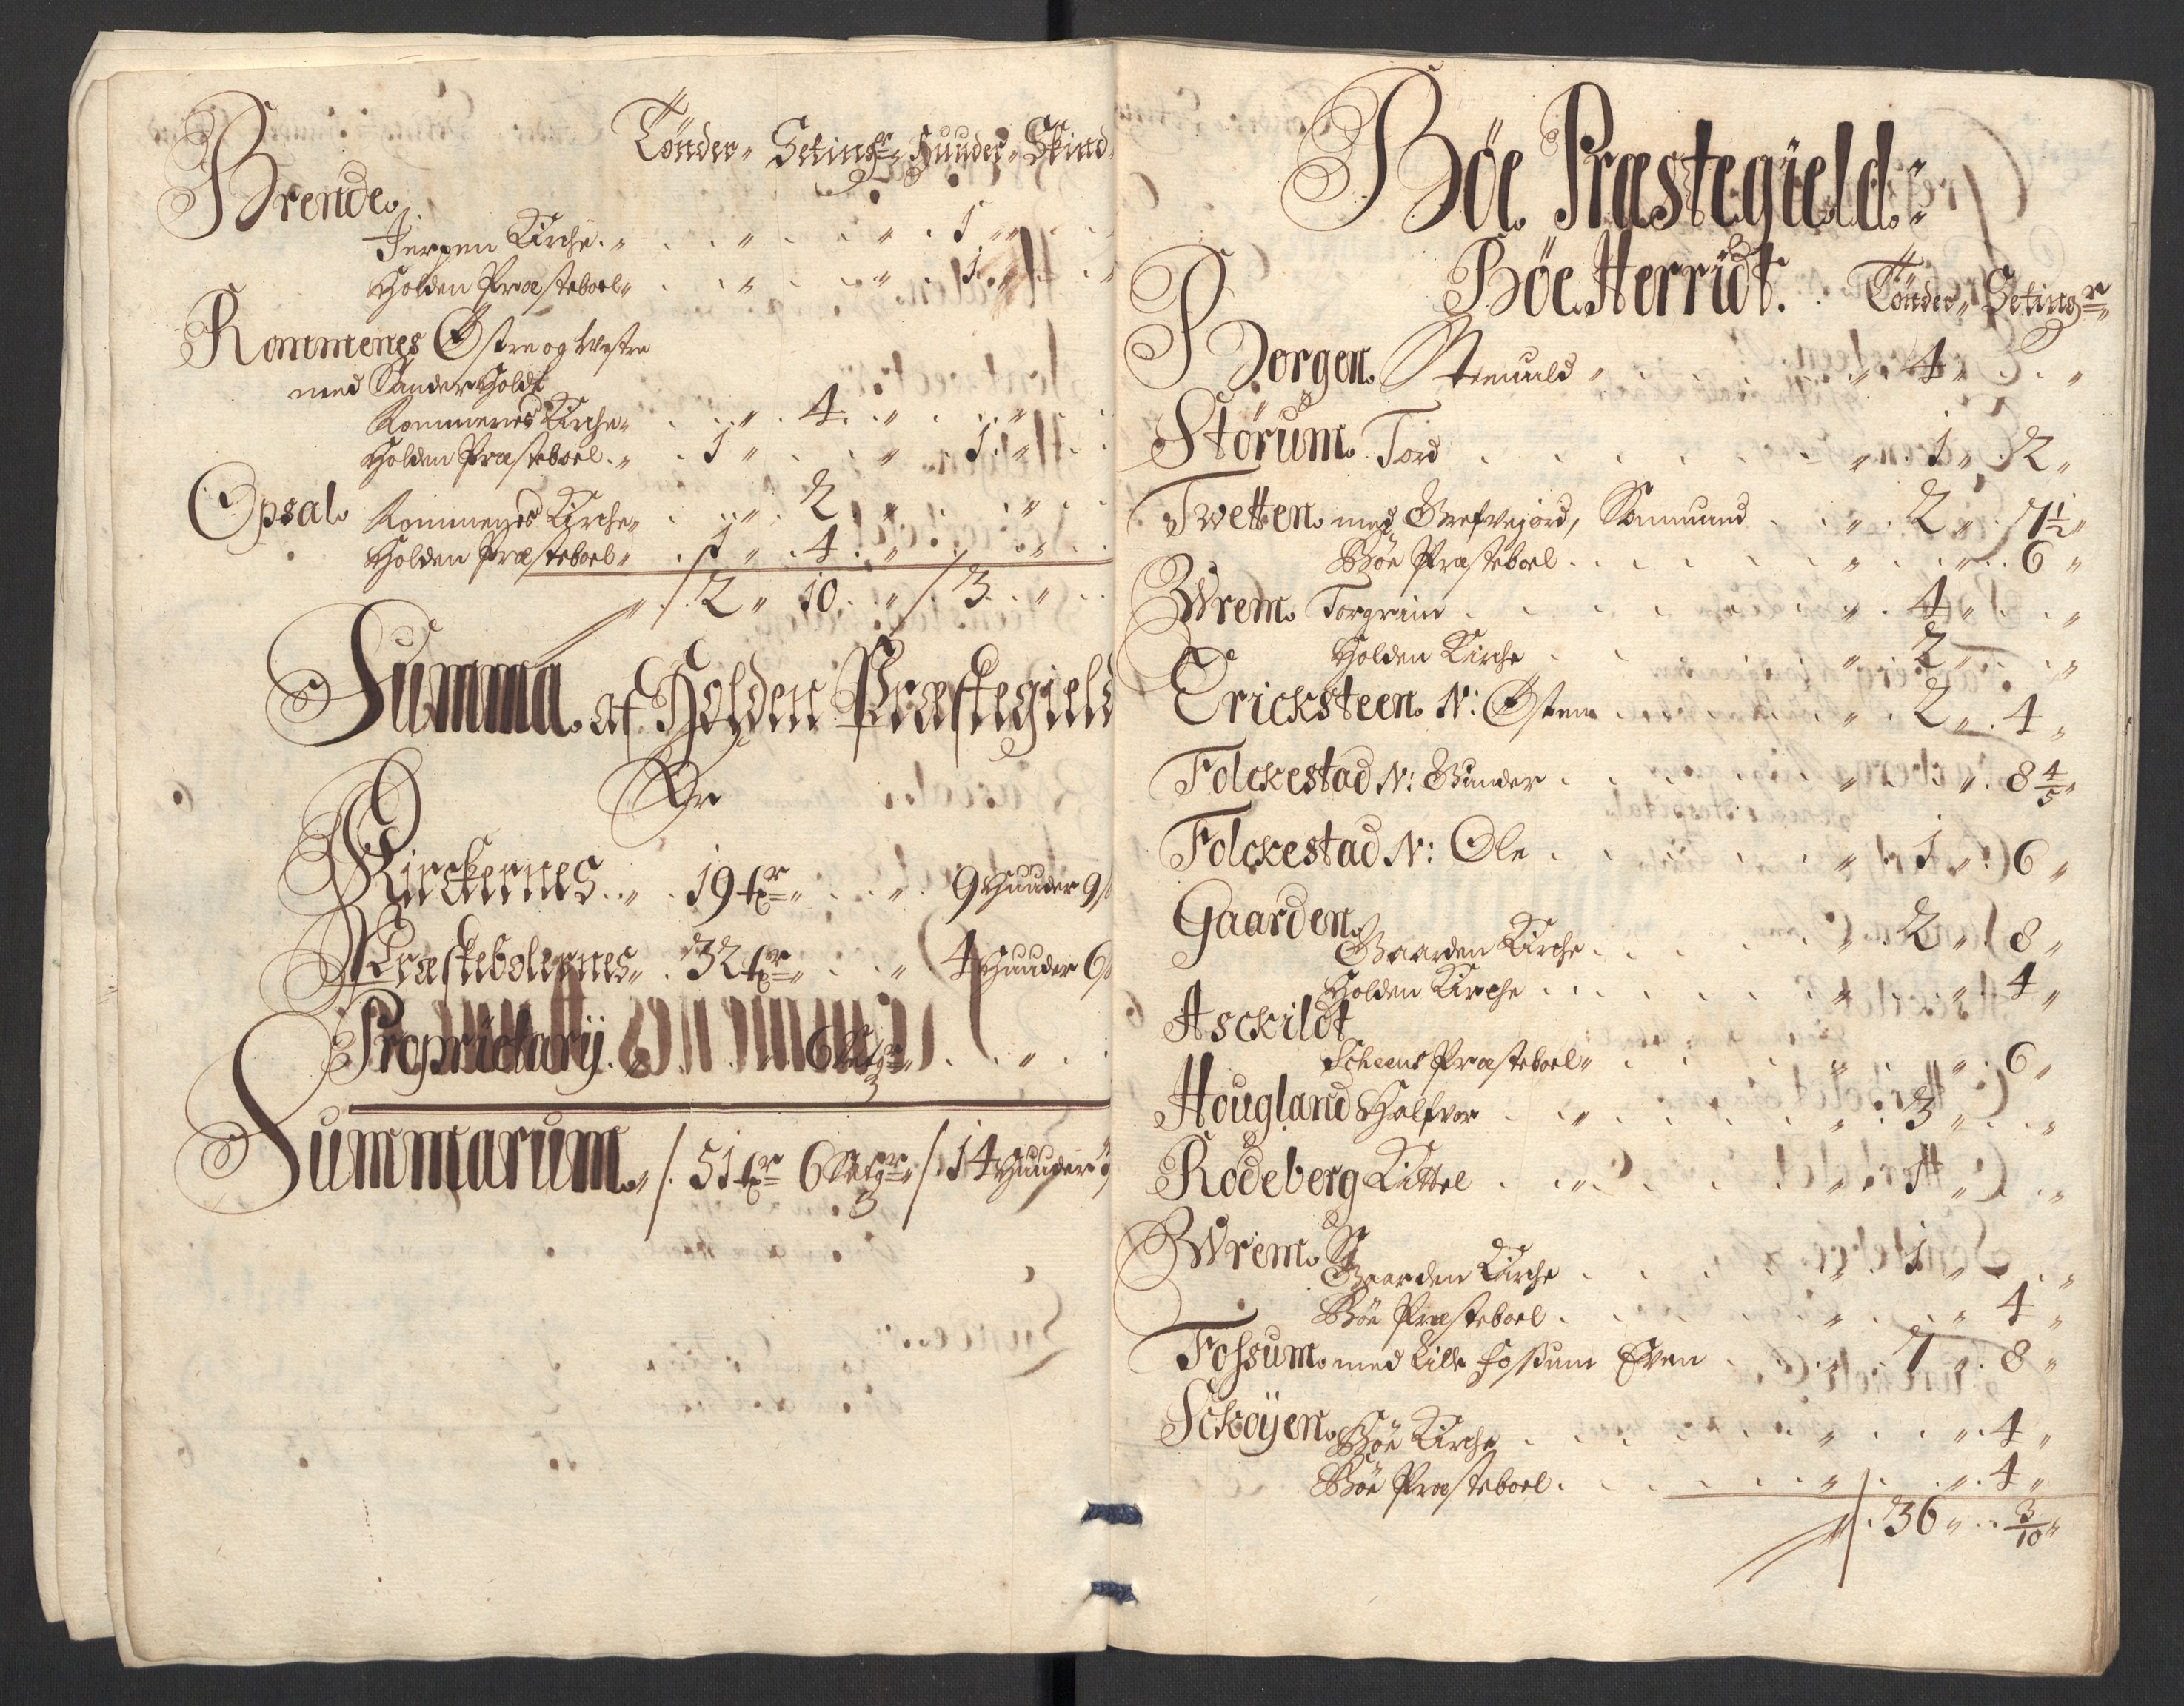 Tönder„ Setingr„ Huuder„ Skind
Brende
Jerpen Kirche „ . . „ . . „ . 1 „ „
Holden Præsteboel „ . . „ . . „ . 1 „ „
Rommenes Østre og Westre
med Sander Holdt
Rommenes Kirche „ . . „ . 4 . „ . . „
Holden Præsteboel „ . 1 „ . . „ . 1 „
Opsal Rommenes Kirche „ . . „ . 2 . „ . . „
Holden Præsteboel „ . 1 „ . 4 . „ . . „
„ /. 2 „ 10 . „ /. 3 . „
Summa af Holden Præstegield
Er
Kirckernes . „ . 19 tr „ . . „ 9 Huuder 9
Præstebolernes „ . 32 tr „ . . „ 4 Huuder 6
Proprietarij . „ . . „ 6 2/3 Setgr „ . . „
Summarum „ /. 51 tr 6 2/3 Setgr „ /. 14 Huuder
Böe Præstegield :
Böe Herridt. Tönder„ Setingr„
Borgen Steenuld „ . . „ 4 „ . . „
Störum Tord . . „ 1 „ . 2 „
Twetten med Grefvejord, Sommund . . „ . 2 „ . 7 1/2 „
Böe Præsteboel . . „ . . „ . 6 „
Wrem Torgrim . . „ . 4 „ . . „
Holden Kirche . . „ . 2 „ . . „
Ericksteen N: Østen . . „ . 2 „ . 4 „
Folckestad N: Gunder . . „ . 1 „ . 8 4/5 „
Folckestad N: Ole . . „ . 1 „ . 6 „
Gaarden
Gaarden Kirche . . „ . 2 „ . 8 „
Holden Kirche . . „ . . „ . 4 „
Asckildt
Scheens Præsteboel „ . . „ . . „ . 6 „
Hougland Halfvor . . „ . 3 „ . . „
Rodeberg Kittel . . „ . 1 „ . . „
Wrem
Gaarden Kirche . . „ . 1 „ . . „
Böe Præsteboel . . „ . . „ . 4 „
Fossum med Lille Fossum Even . . „ . 7 „ . 8 „
Sckoÿen
Böe Kirche . . „ . . „ . 4 „
Böe Præsteboel . . „ . . „ . 4 „
„ /. 36 „ . . 3/10 „